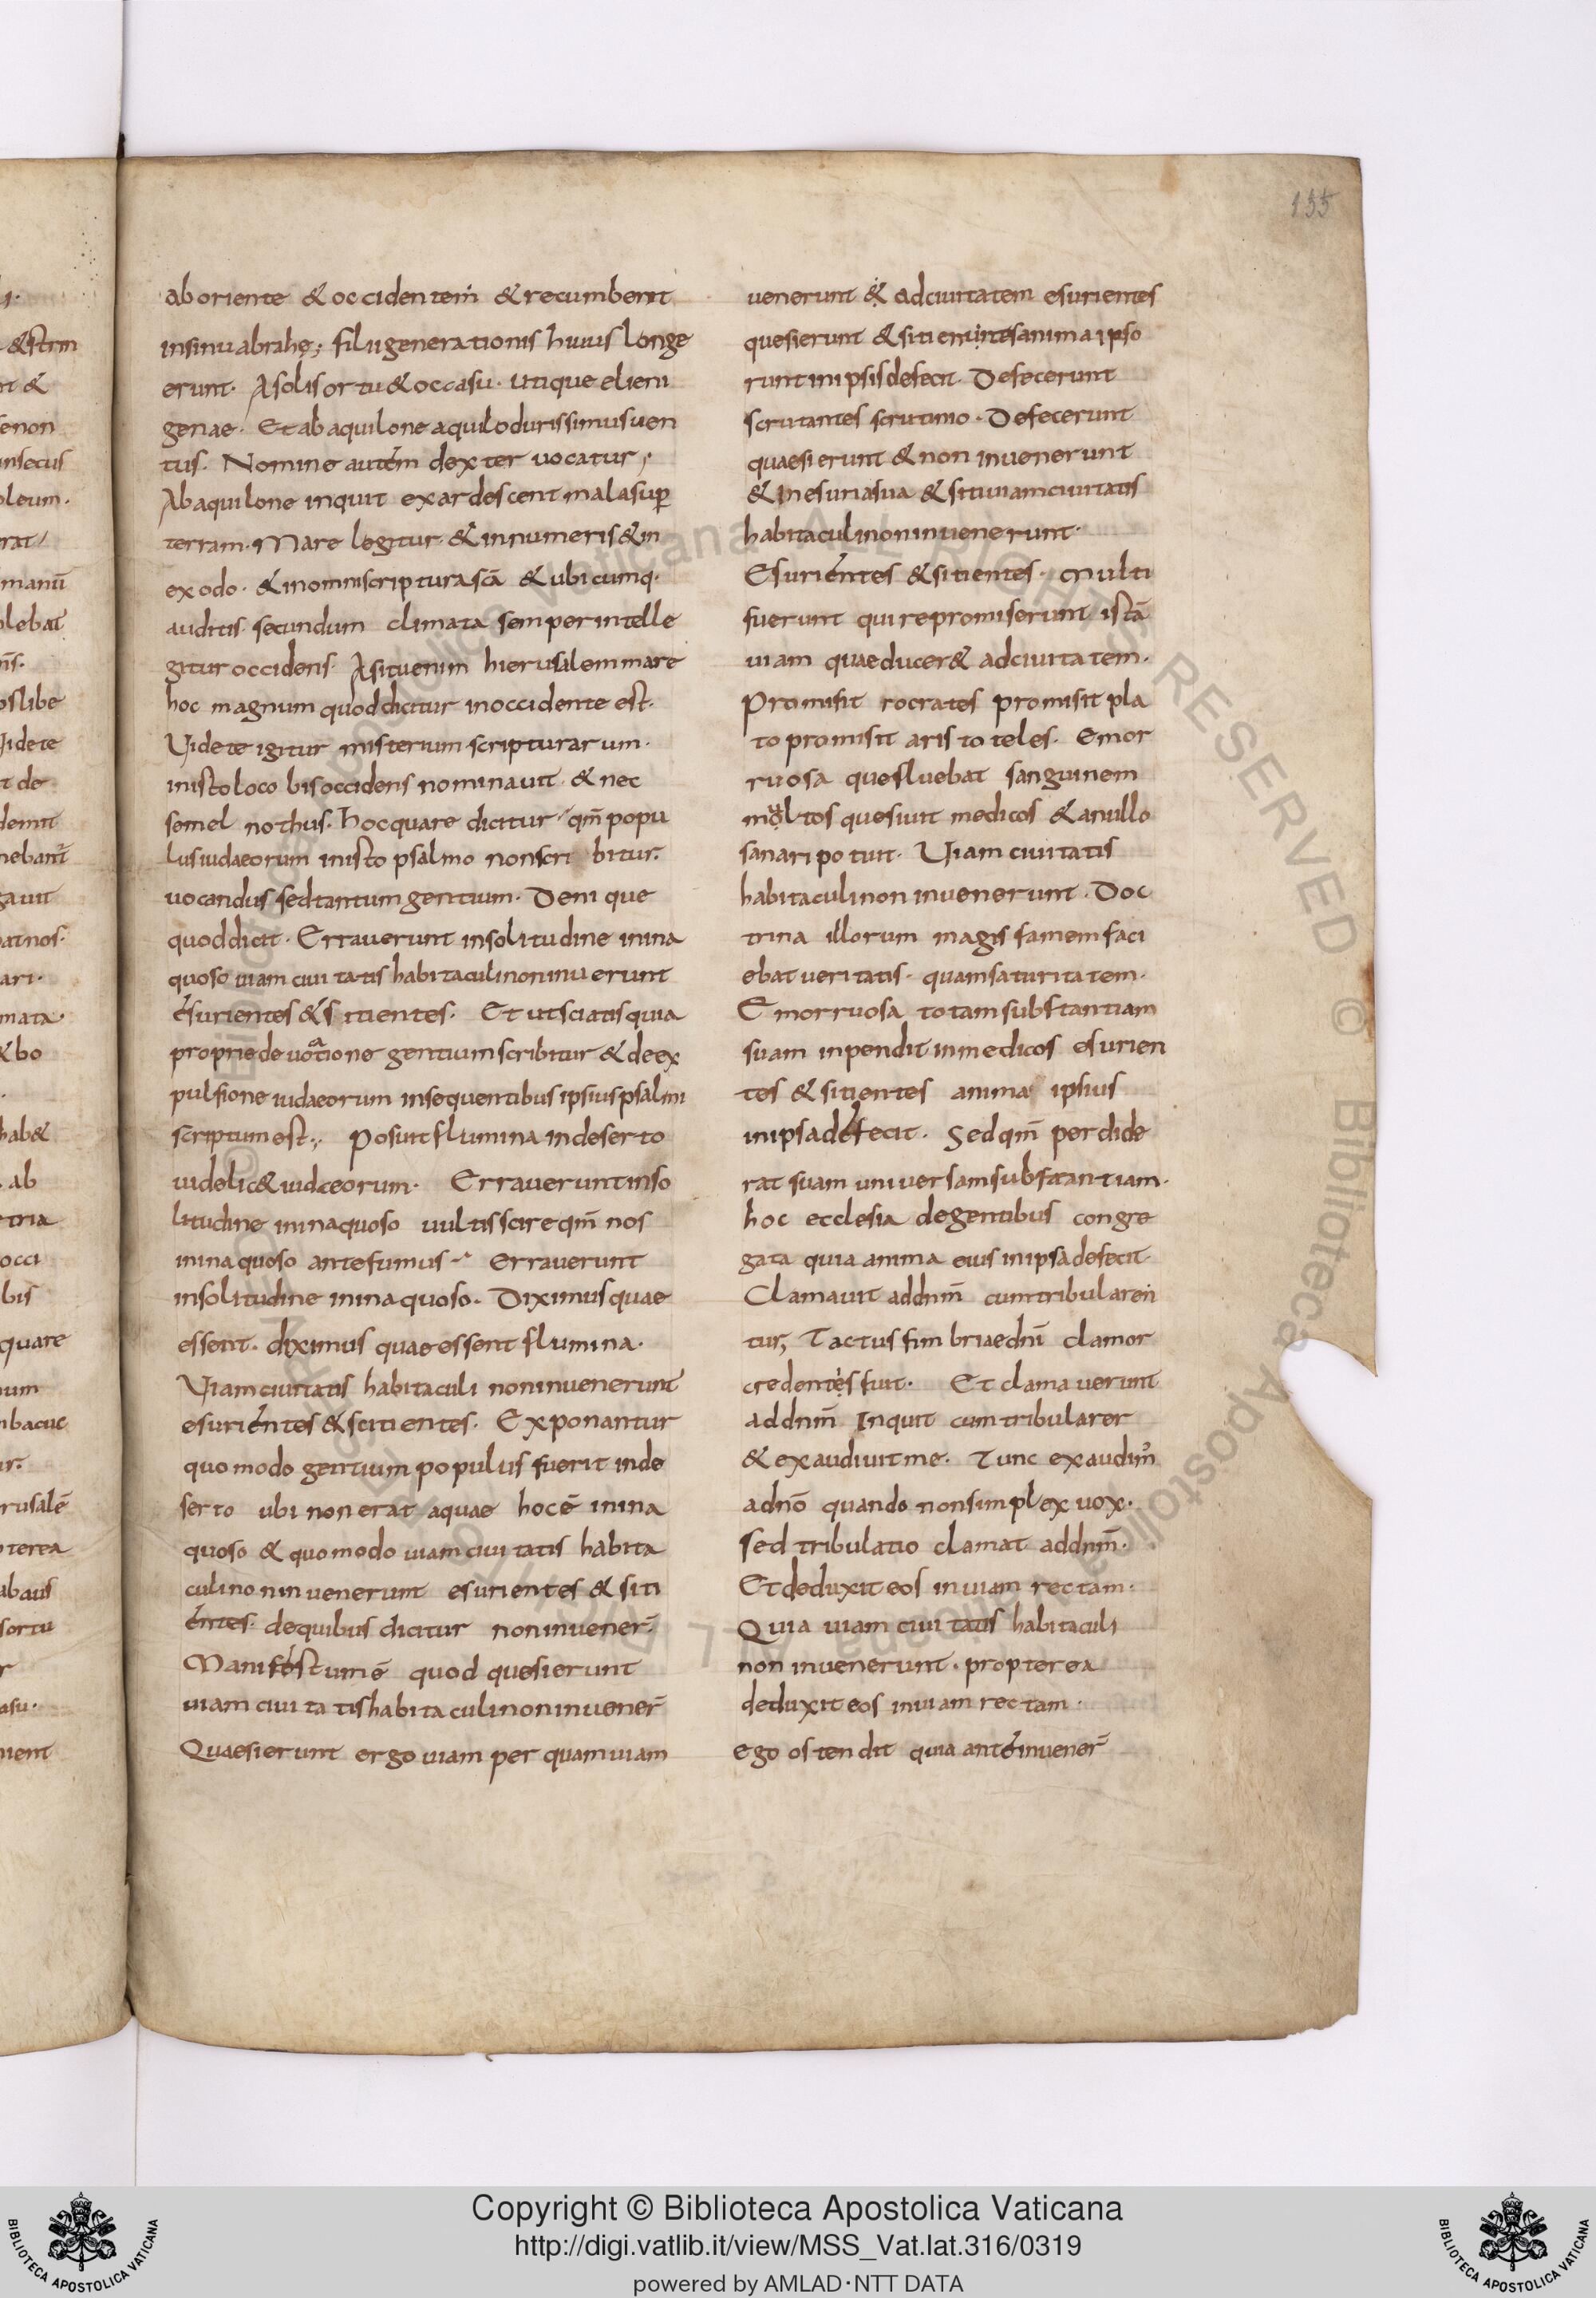 155
ab oriente & occidentem & recumbent
insinu abrahę; filii generationis huius longe
erunt. A solis ortu & occasu. utique elieni
genae. Et ab aquilone aquilo durissimus uen
tus. Nomine autem dexter uocatur;
Ab aquilone inquit exardescent mala sup̄
terram. Mare legitur & innumeris & in
exodo. & in omni scriptura scā & ubicumq·
auditis secundum climata semper intelle
gitur occidens. A situ enim hierusalem mare
hoc magnum quod dicitur in occidente est.
Uidete igitur misterium scripturarum.
in isto loco bis occidens nominauit & nec
semel nothus. Hoc quare dicitur qm̄ popu
lus iudaeorum in isto psalmo non scri bitur.
uocandus sed tantum gentium. Deni que
quod dicit. Errauerunt in solitudine in ina
quoso uiam ciuitatis habitaculi non inu erunt
esurientes & sitientes. Et ut sciatis quia
proprie de uocatione gentium scribitur & de ex
pulsione iudaeorum in sequentibus ipsius psalmi
scriptum est; Posuit flumina in deserto
uidelic& iudaeorum. Errauerunt in so
litudine in inaquoso uultis scire qm̄ nos
in inaquoso ante fuimus Errauerunt
in solitudine in inaquoso. Diximus quae
essent. diximus quae essent flumina.
Uiam ciuitatis habitaculi non inuenerunt
esurientes & scitientes. Exponantur
quomodo gentium populus fuerit in de
serto ubi non erat aquae hoc ē in ina
quoso & quomodo uiam ciuitatis habita
culi non inuenerunt esurientes & siti
entes. de quibus dicitur non inuener̄.
Manifestum ē quod quesierunt
uiam ciuitatis habitaculi non inuener̄
Quaesierunt ergo uiam per quam uiam
uenerunt & ad ciuitatem esurientes
quesierunt & sitientes anima ipso
runt in ipsis defecit. Defecerunt
scrutantes scrutinio. Defecerunt
quaesierunt & non inuenerunt
& in esuria sua & siti uiam ciuitatis
habitaculi non inuenerunt.
Esurientes & sitientes. Multi
fuerunt qui repromiserunt istā
uiam quae ducer& ad ciuitatem.
Promisit rocrates promisit pla
to promisit aristoteles. Emor
ruosa que fluebat sanguinem
multos quesiuit medicos & a nullo
sanari potuit. Uiam ciuitatis
habitaculi non inuenerunt. Doc
trina illorum magis famem faci
ebat ueritatis. quam saturitatem.
Emorruosa totam substantiam
suam inpendit in medicos esurien
tes & sitientes anima ipsius
in ipsa defecit. Sed qm̄ perdide
rat suam uniuersam substantiam.
hoc ecclesia de gentibus congre
gata quia anima eius in ipsa defecit.
Clamauit ad dnm̄ cum tribularen
tur, Tactus fimbriae dnī clamor
credentes fuit. Et clamauerunt
ad dnm̄ Inquit cum tribularer
& exaudiuit me. Tunc exaudim᷒
a dnō quando non simplex uox.
sed tribulatio clamat ad dnm̄.
Et deduxit eos in uiam rectam.
Quia uiam ciuitatis habitaculi
non inuenerunt. propterea
deduxit eos in uiam rectam.
ego ostendit quia ante inuener̄
Copyright © Biblioteca Apostolica Vaticana
http://digi.vatlib.it/view/MSS_Vat.lat.316/0319
powered by AMLAD·NTT DATA